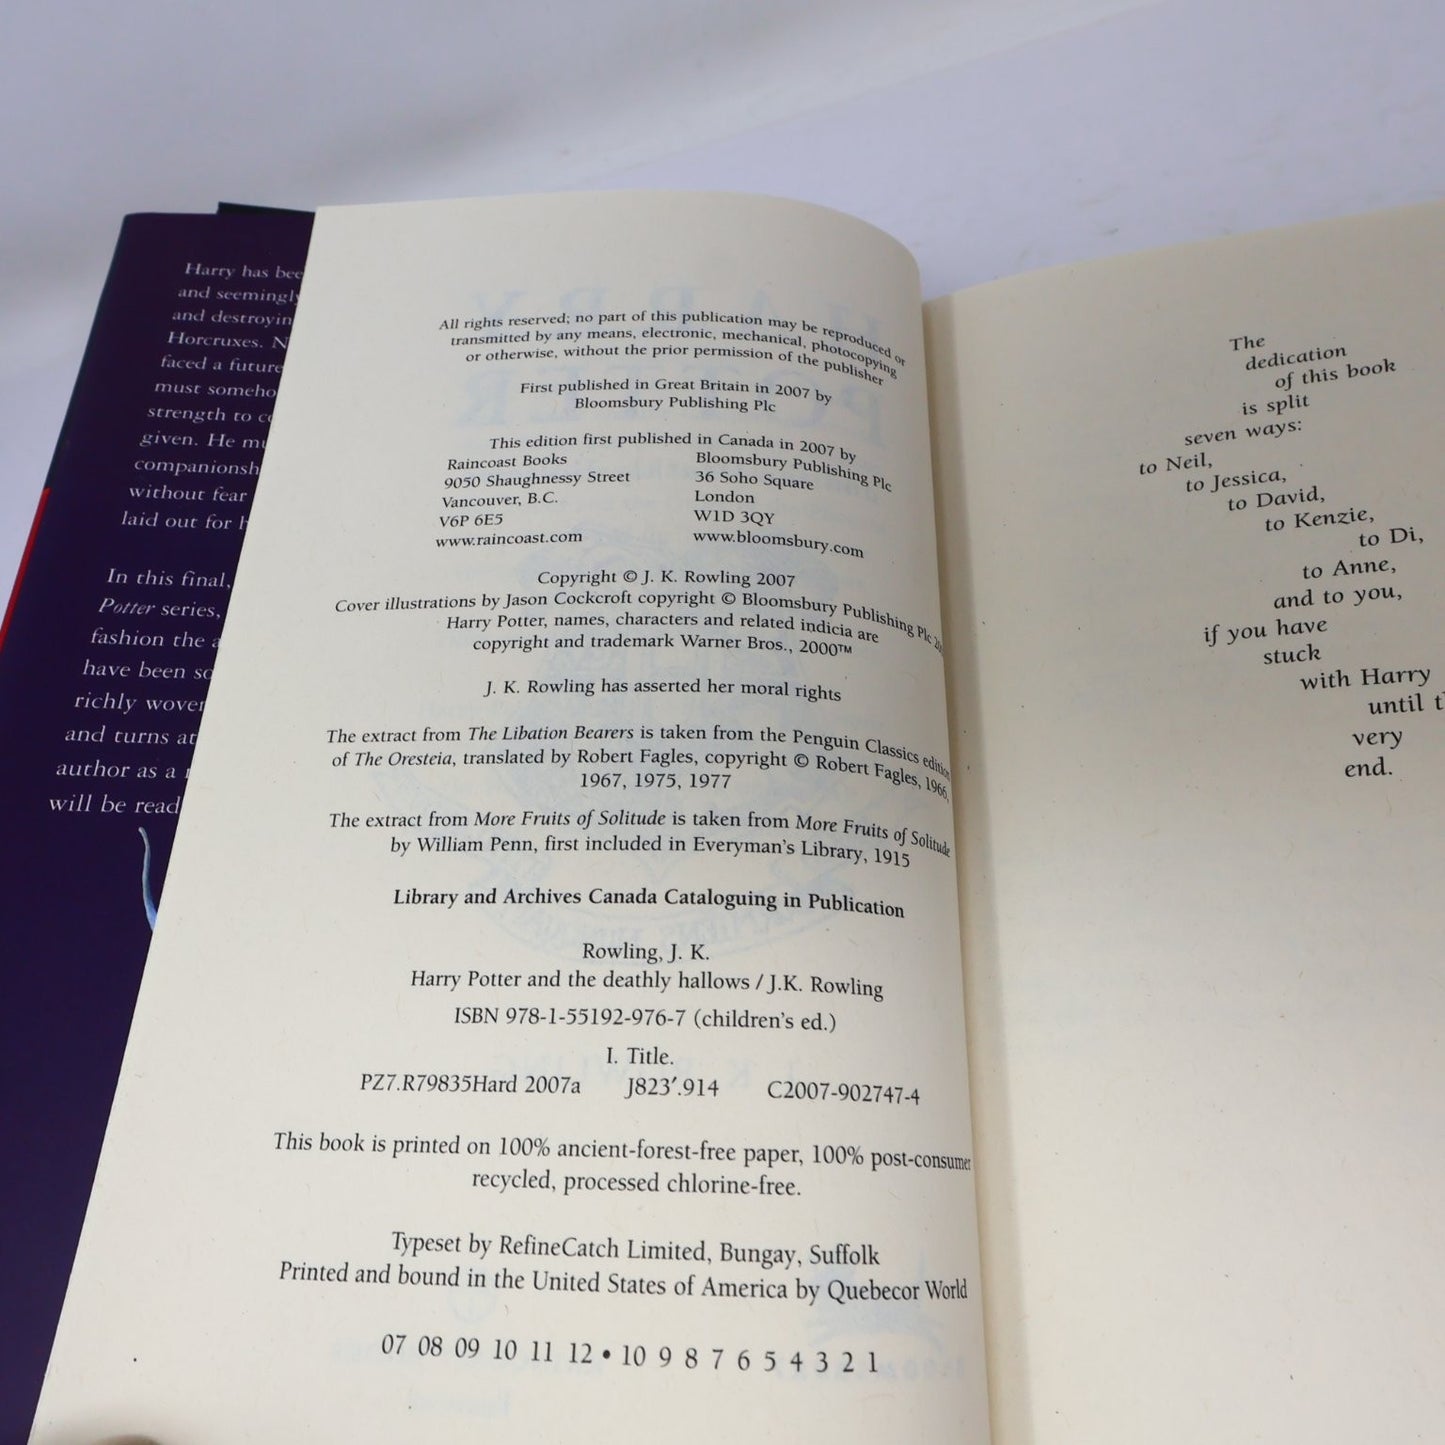 Harry has bee
and seemingly
and destroyin
Horcruxes. N
faced a future
must someho
strength to c
given. He mu
companionsh
without fear
laid out for h
In this final,
Potter series,
fashion the a
have been so
richly wover
and turns at
author as a
will be read
All rights reserved; no part of this publication may be reproduced or
transmitted by any means, electronic, mechanical, photocopying
or otherwise, without the prior permission of the publisher
First published in Great Britain in 2007 by
Bloomsbury Publishing Plc
This edition first published in Canada in 2007 by
Raincoast Books
9050 Shaughnessy Street
Vancouver, B.C.
V6P 6E5
www.raincoast.com
Bloomsbury Publishing Plc
36 Soho Square
London
W1D 3QY
www.bloomsbury.com
Copyright © J. K. Rowling 2007
Cover illustrations by Jason Cockcroft copyright © Bloomsbury Publishing Plc
Harry Potter, names, characters and related indicia are
copyright and trademark Warner Bros., 2000™
J. K. Rowling has asserted her moral rights
The extract from The Libation Bearers is taken from the Penguin Classics edition
of The Oresteia, translated by Robert Fagles, copyright © Robert Fagles, 1966,
1967, 1975, 1977
The extract from More Fruits of Solitude is taken from More Fruits of Solitude
by William Penn, first included in Everyman's Library, 1915
Library and Archives Canada Cataloguing in Publication
Rowling, J. K.
Harry Potter and the deathly hallows / J.K. Rowling
ISBN 978-1-55192-976-7 (children's ed.)
I. Title.
PZ7.R79835Hard 2007a J823′.914 C2007-902747-4
This book is printed on 100% ancient-forest-free paper, 100% post-consumer
recycled, processed chlorine-free.
Typeset by RefineCatch Limited, Bungay, Suffolk
Printed and bound in the United States of America by Quebecor World
07 08 09 10 11 12 • 10 9 8 7 6 5 4 3 2 1
The
dedication
of this book
is split
seven ways:
to Neil,
to Jessica,
to David,
to Kenzie,
to Di,
to Anne,
and to you,
if you have
stuck
with Harry
until t
very
end.